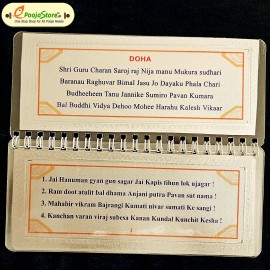 ePoojaStore.in
One Stop Shop for All Pooja Needs
DOHA
Shri Guru Charan Saroj raj Nija manu Mukura sudhari
Baranau Raghuvar Bimal Jasu Jo Dayaku Phala Chari
Budheeheen Tanu Jannike Sumiro Pavan Kumara
Bal Buddhi Vidya Dehoo Mohee Harahu Kalesh Vikaar
1. Jai Hanuman gyan gun sagar Jai Kapis tihun lok ujagar !
2. Ram doot atulit bal dhama Anjani putra Pavan sut nama !
3. Mahabir vikram Bajrangi Kumati nivar sumati Ke sangi !
4. Kanchan varan viraj subesa Kanan Kundal Kunchit Kesha !